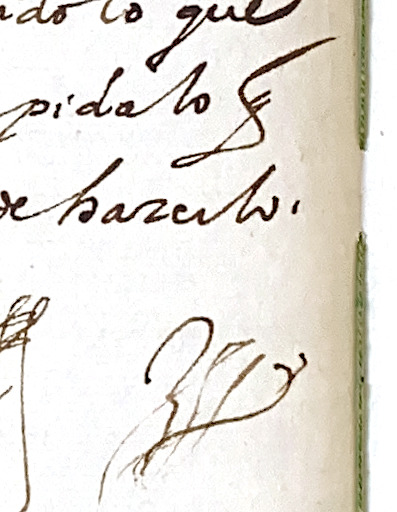 ndo lo que
pida lo q
de hazerlo.